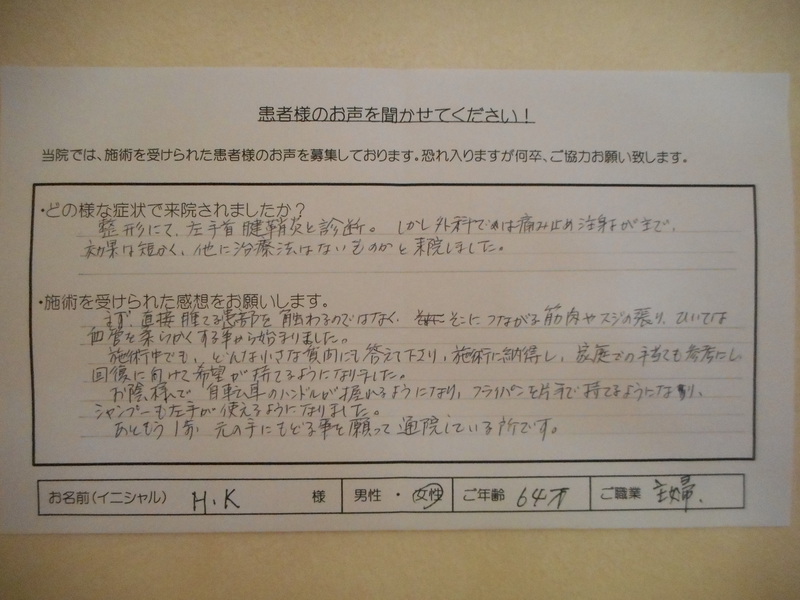 患者様のお声を聞かせてください！
当院では、施術を受けられた患者様のお声を募集しております。恐れ入りますが何卒、ご協力お願い致します。
・どの様な症状で来院されましたか？
整形にて、左手首腱鞘炎と診断。しかし外科でのは痛み止め注射がまで、
効果は短かく、他に治療法はないものかと来院しました。
・施術を受けられた感想をお願いします。
まず、直接腫てる患部を触わるのではなく、そこにつながる筋肉やスジの張り、ひいては
血管を柔らかくする事から始まりました。
施術中でも、どんな小さな質問にも答えて下さり、施術に納得し、家庭での手当ても参考にし
回復に向けて希望が持てるようになりました。
お陰様で自転車のハンドルが握れるようになり、フライパンを片手で持てるようになり、
シャンプーも左手が使えるようになりました。
あともう1歩、元の手にもどる事を願って通院している所です。
お名前（イニシャル） H.K 様 男性・女性 ご年齢 64才 ご職業 主婦.